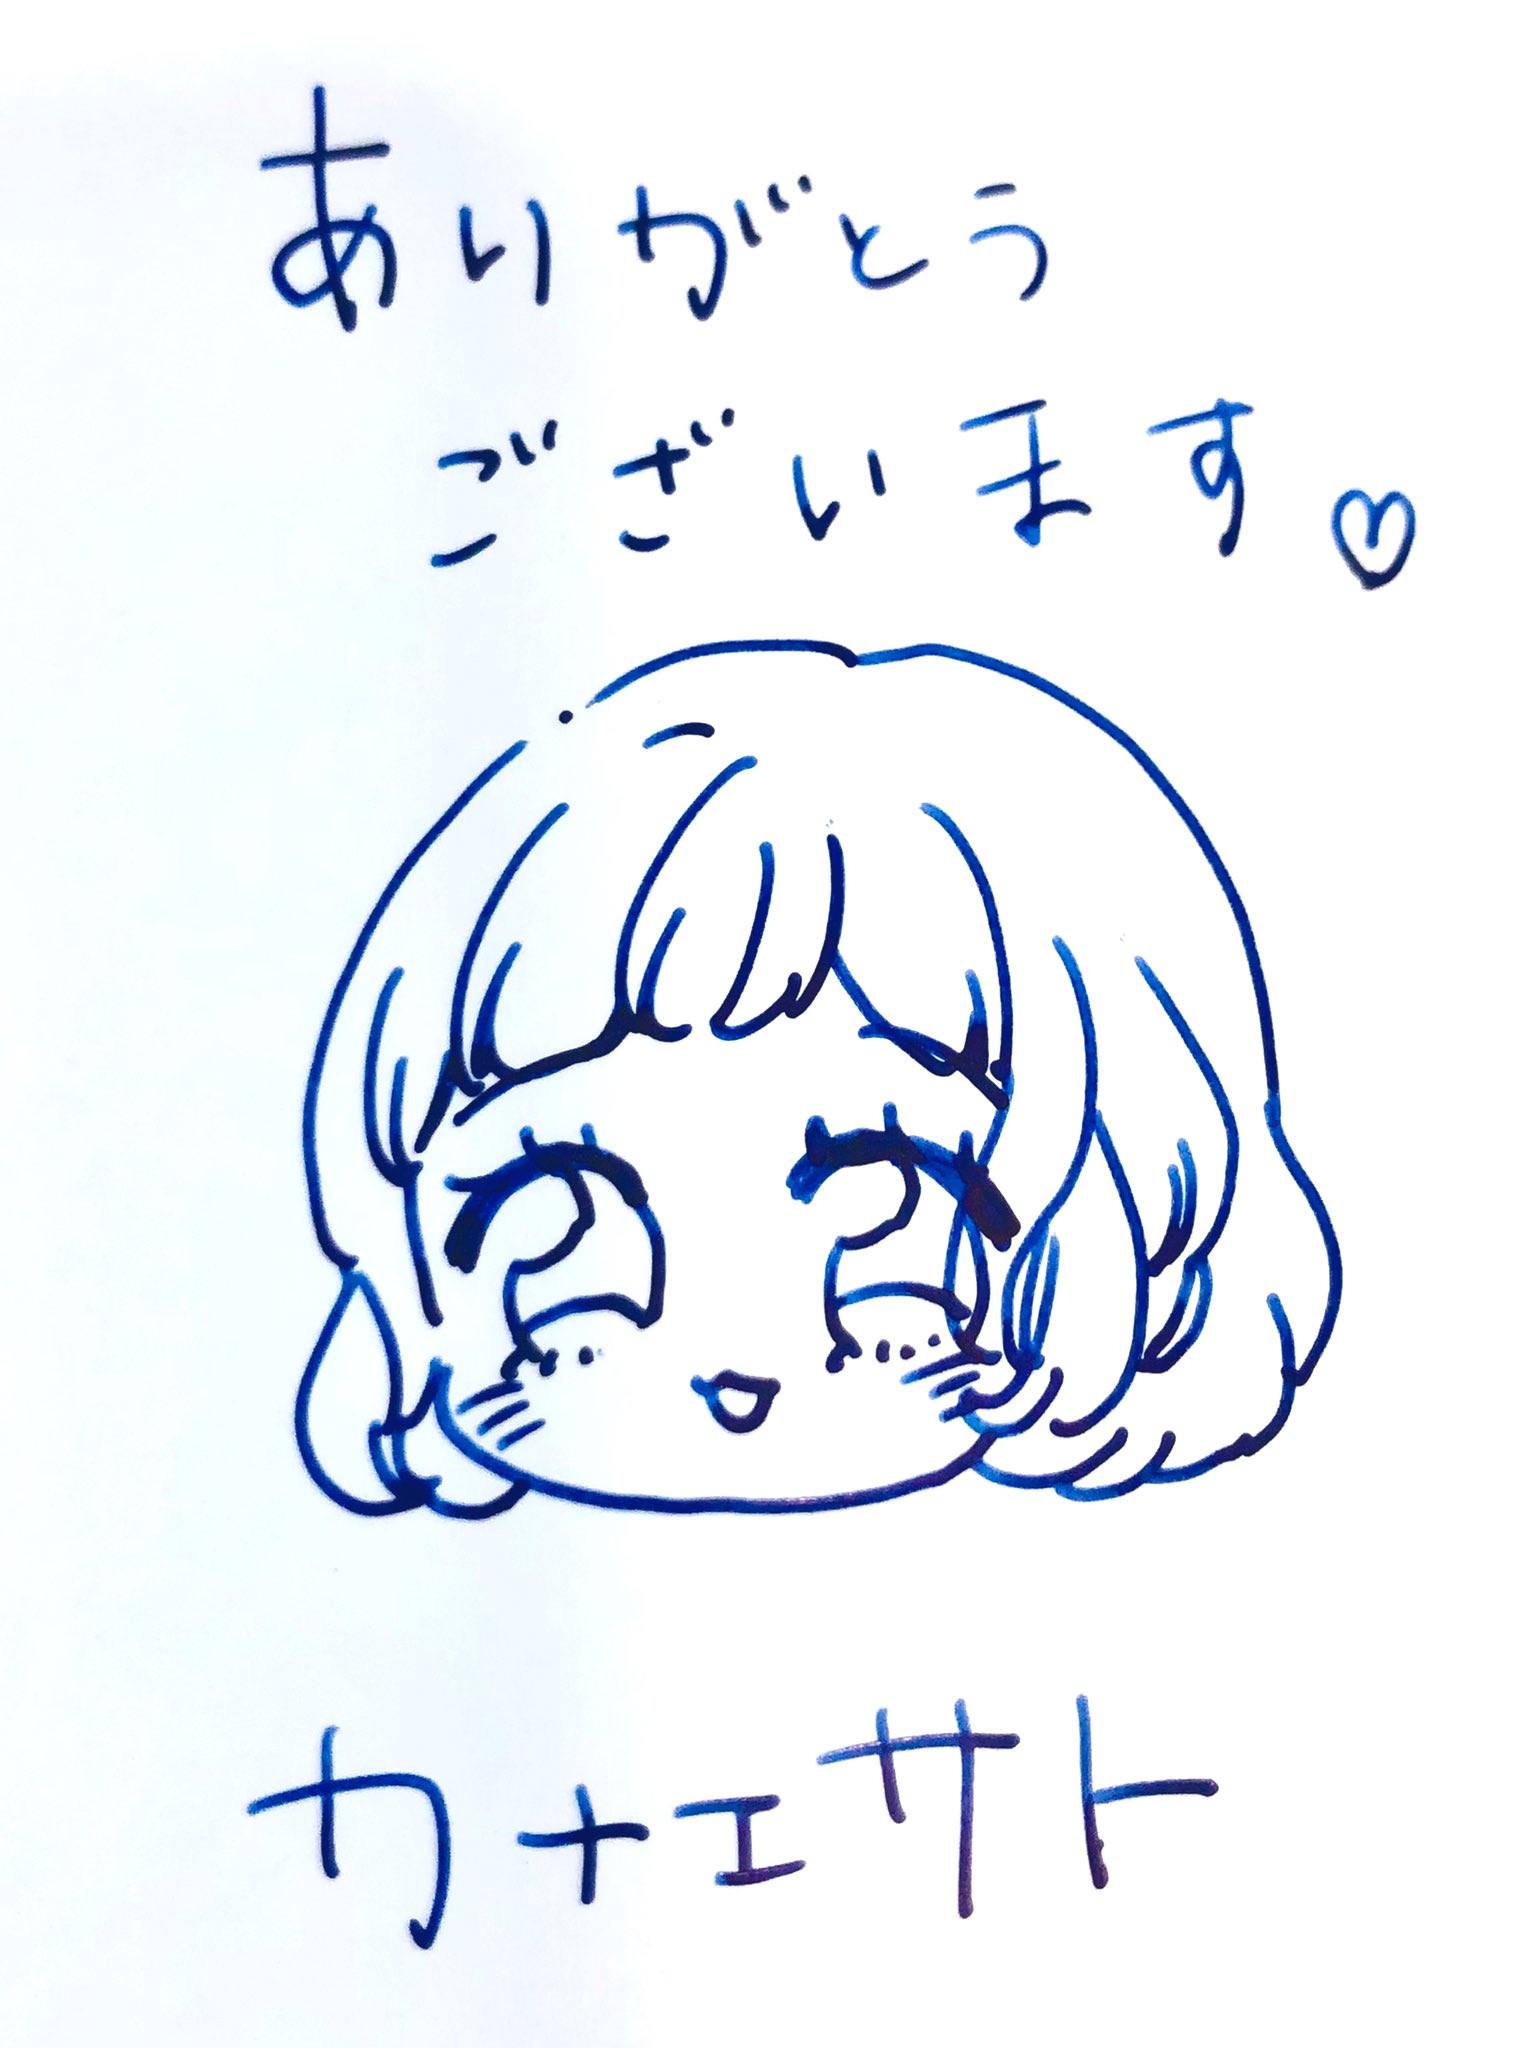 ありがとう
ございます♡
カナエサト